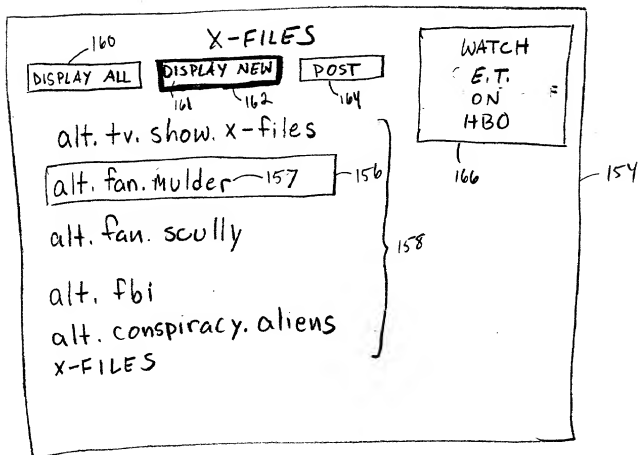 160
X-FILES
DISPLAY ALL
DISPLAY NEW
POST
161
162
164
WATCH
E.T.
ON
HBO
166
154
alt. tv. show. x-files
alt. fan. mulder 157
156
alt. fan. scully
158
alt. fbi
alt. conspiracy. aliens
X-FILES